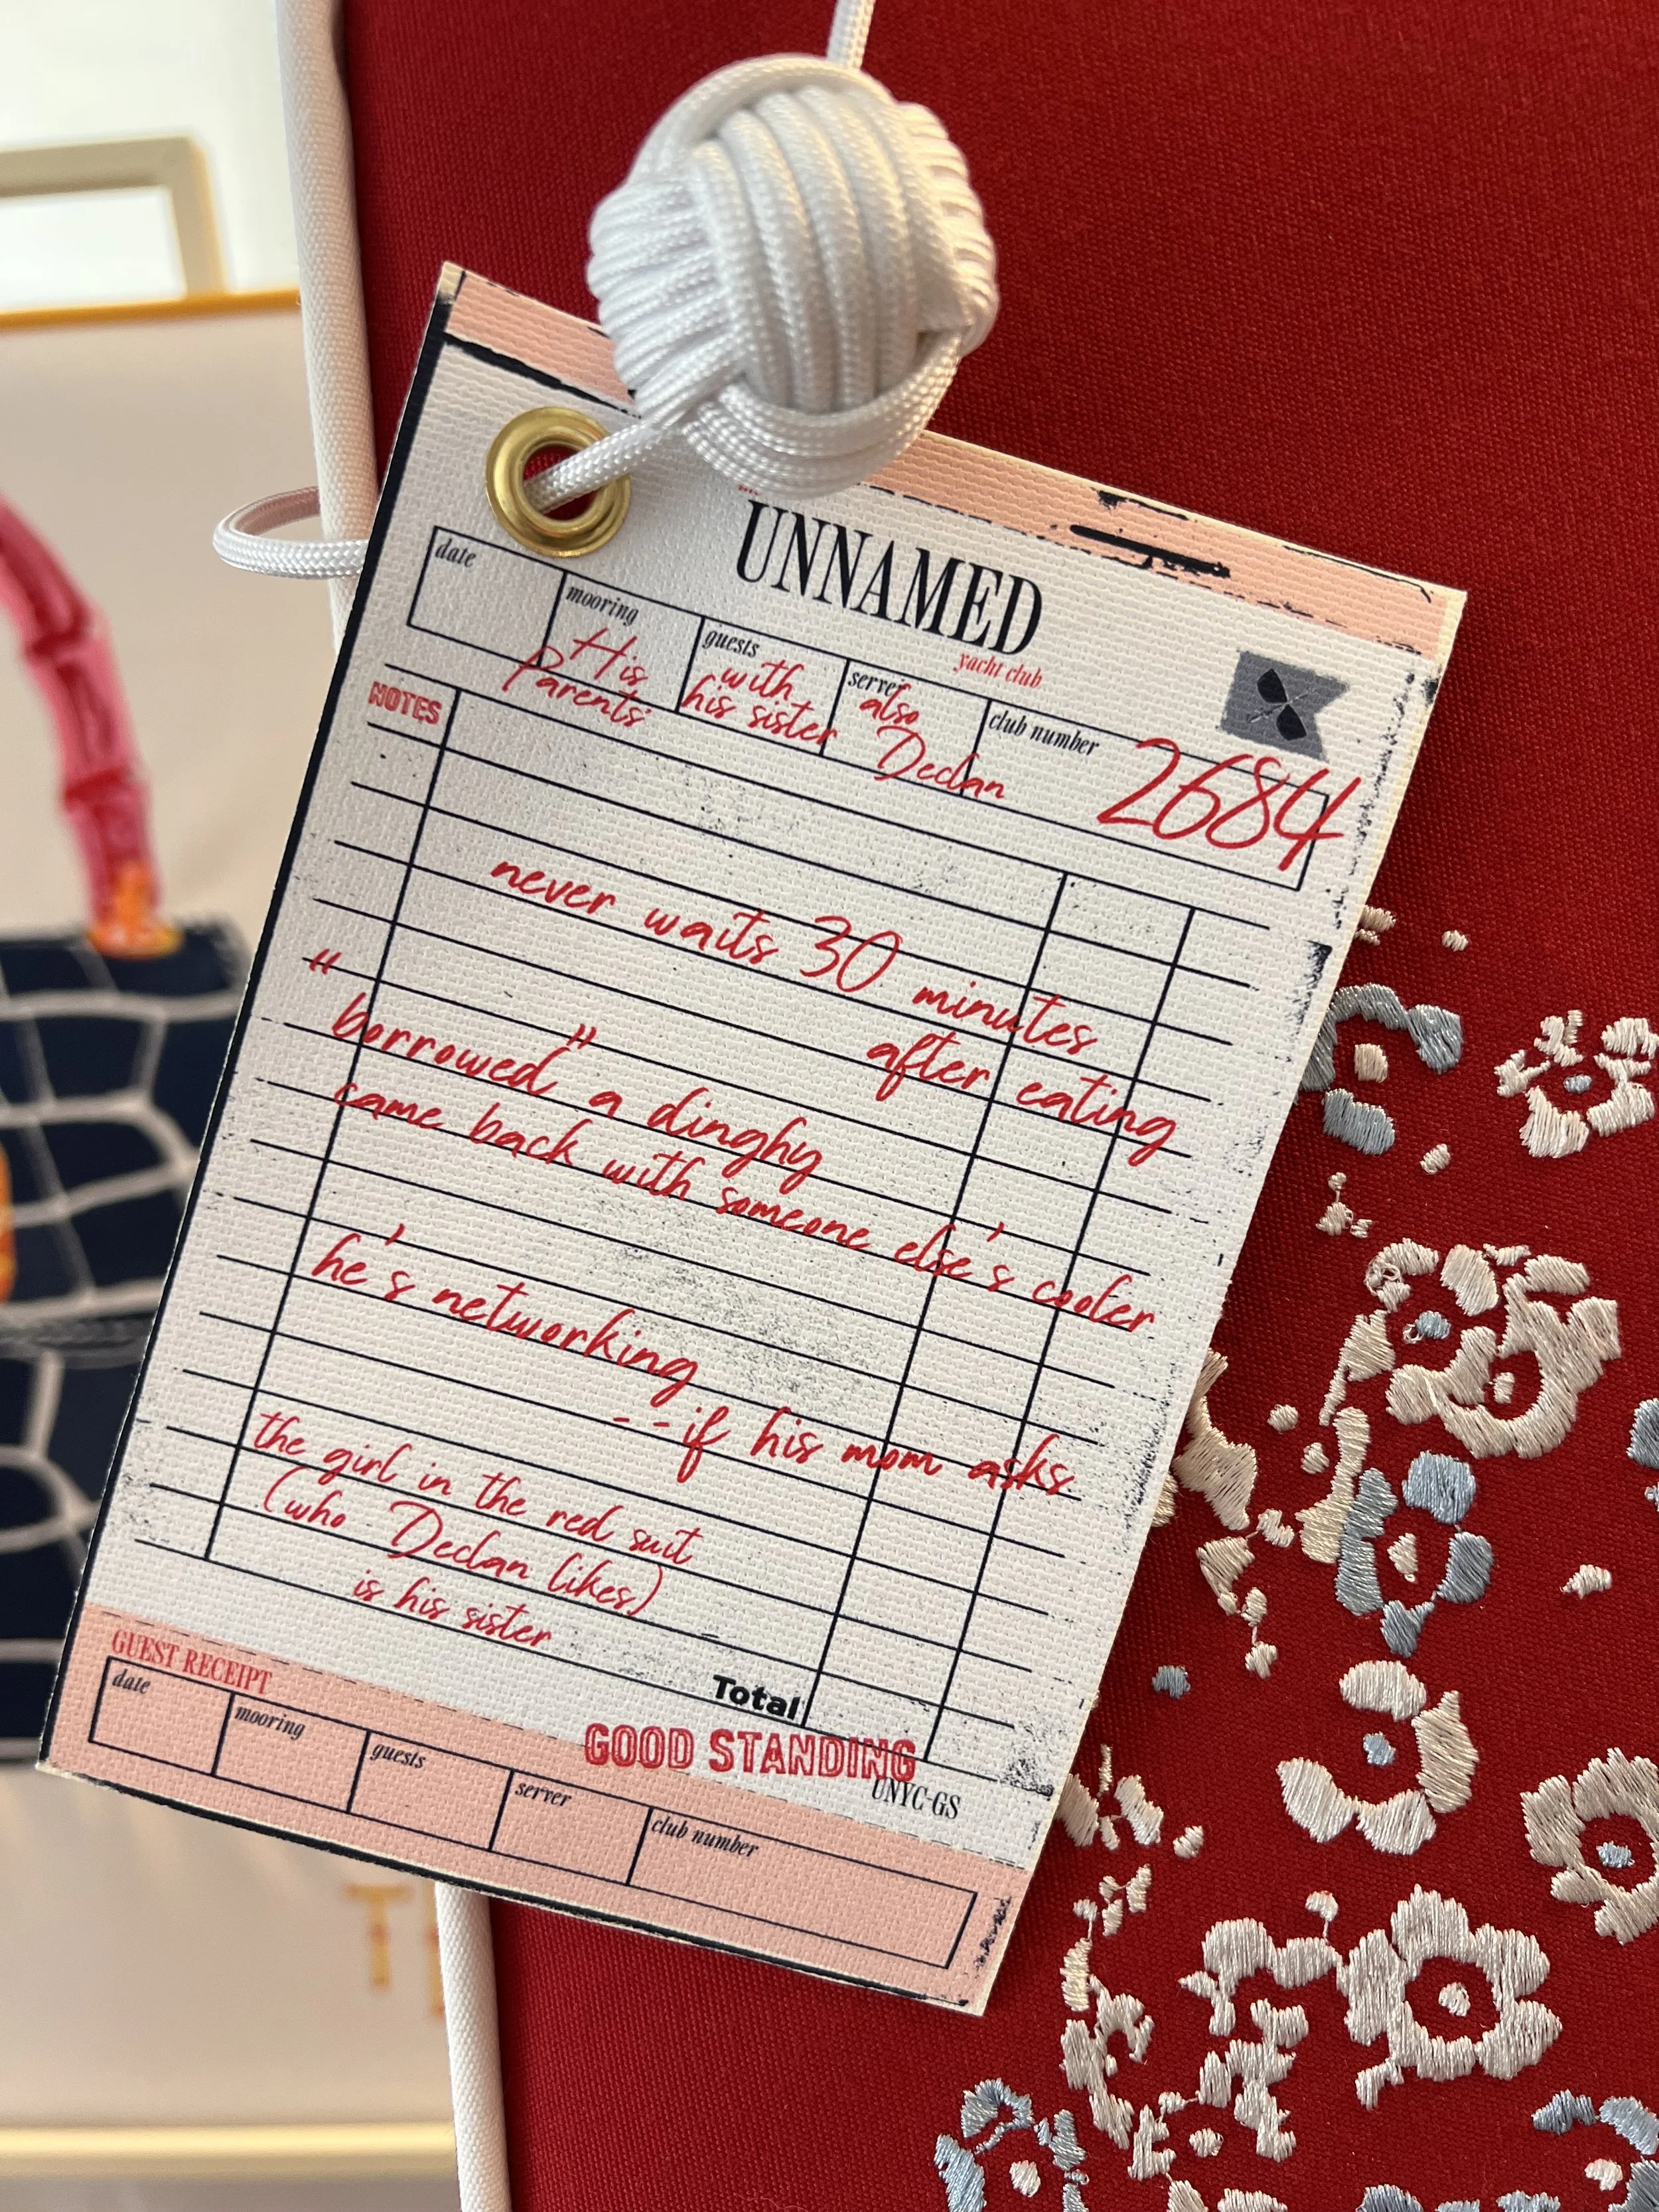 UNNAMED
yacht club
date
mooring
guests
server
club number
His
Parents'
with
his sister
also
Declan
2684
NOTES
never waits 30 minutes
after eating
"borrowed" a dinghy
came back with someone else's cooler
he's networking
--if his mom asks
the girl in the red suit
(who Declan likes)
is his sister
Total
GOOD STANDING
UNYC-GS
GUEST RECEIPT
date
mooring
guests
server
club number